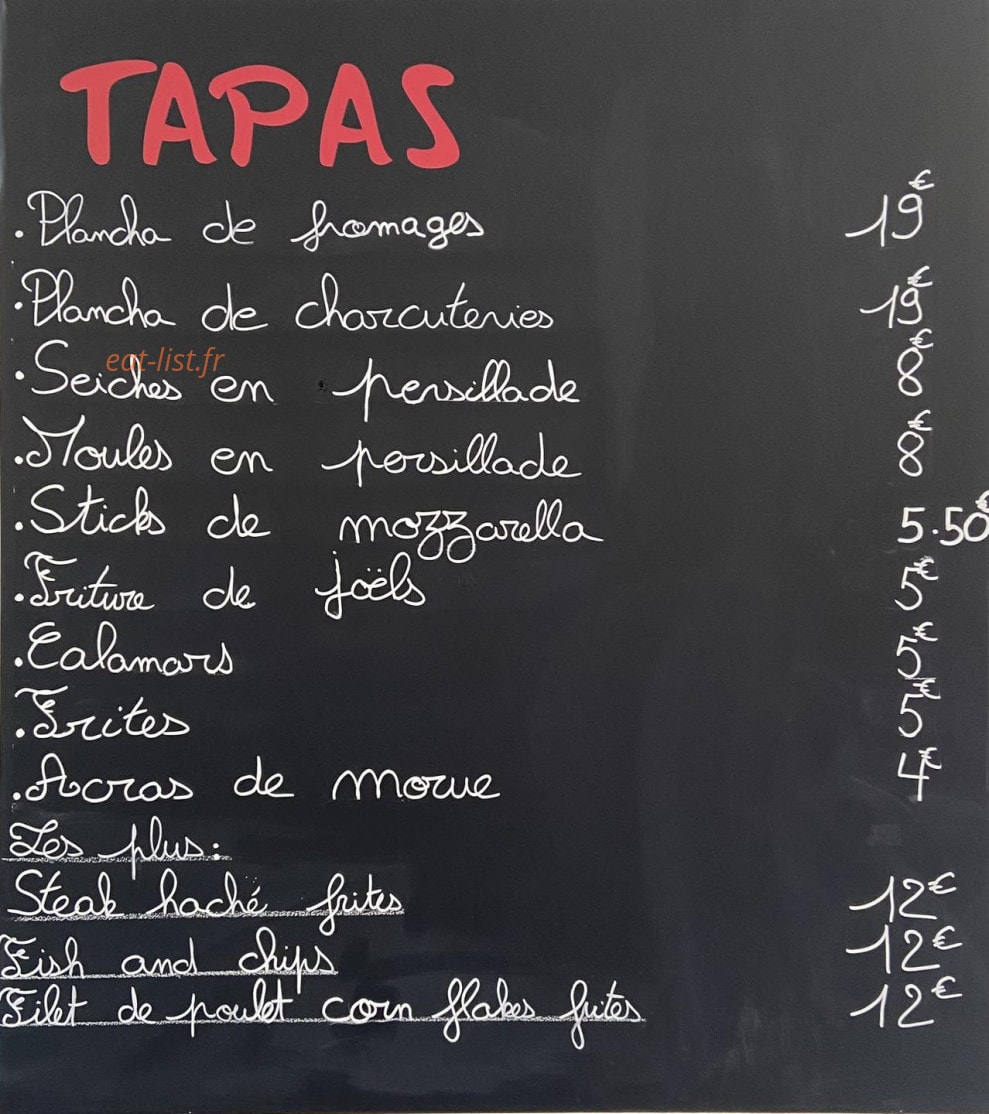 TAPAS
. Plancha de fromages 19€
. Plancha de charcuteries 19€
eat-list.fr
. Seiches en persillade 8€
. Moules en persillade 8€
. Sticks de mozzarella 5.50€
. Friture de joëls 5€
. Calamars 5€
. Frites 5€
. Acras de morue 4€
Les plus:
Steak haché frites 12€
Fish and chips 12€
Filet de poulet corn flakes frites 12€